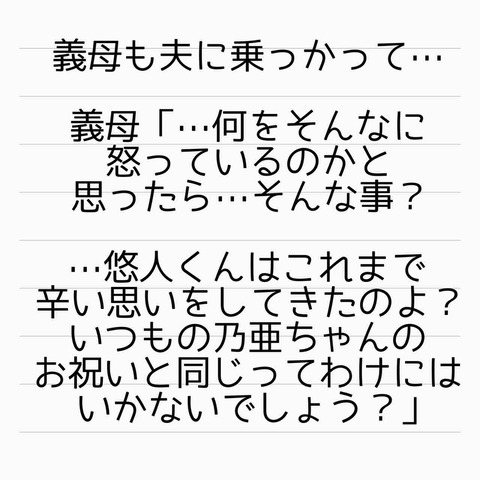 義母も夫に乗っかって…
義母「…何をそんなに
怒っているのかと
思ったら…そんな事？
…悠人くんはこれまで
辛い思いをしてきたのよ？
いつもの乃亜ちゃんの
お祝いと同じってわけには
いかないでしょう？」